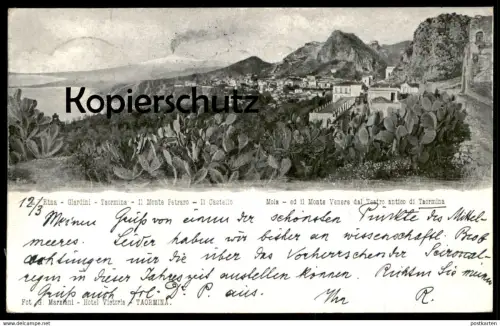 Kopierschutz
Etna - Giardini - Taormina - Il Monte Petraro - Il Castello Mola - ed il Monte Venere dal Teatro antico di Taormina
12/3
Meinen Gruß von einem der schönsten Punkte des Mittel-
meeres. Leider haben wir bisher an wissenschaftl. Beob
achtungen nur die über das Vorherrschen der
regen in dieser Jahreszeit anstellen können. Richten Sie meinen
Gruß auch frl. D. P. aus. Ihr R.
Fot. G. Marziani - Hotel Victoria - TAORMINA.